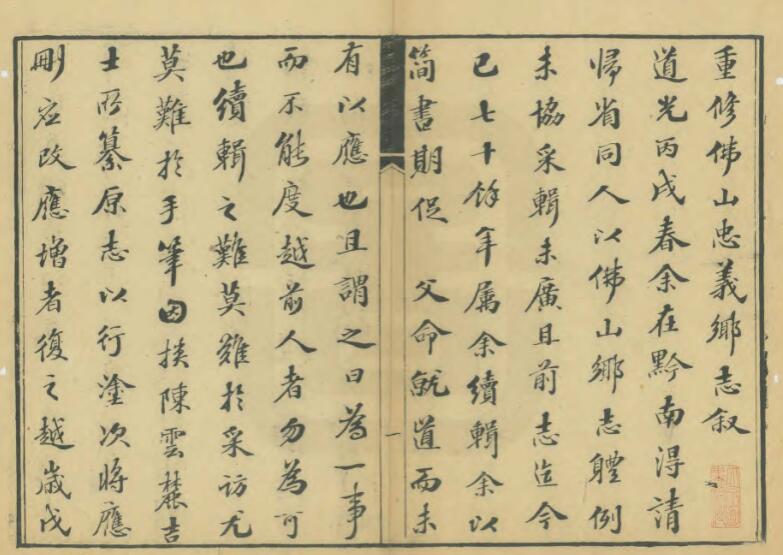 重修佛山忠義鄉志叙
道光丙戌春余在黔南得請
歸省同人以佛山鄉志體例
未協采輯未廣且前志迄今
已七十餘年属余續輯余以
简書期促 父命就道而未
有以應也且謂之曰為一事
而不能度越前人者勿為可
也續輯之難莫難於采訪尤
莫難於手筆因挨陳雲麓吉
士所纂原志以行塗次將應
刪應改應增者復之越歲戊
一